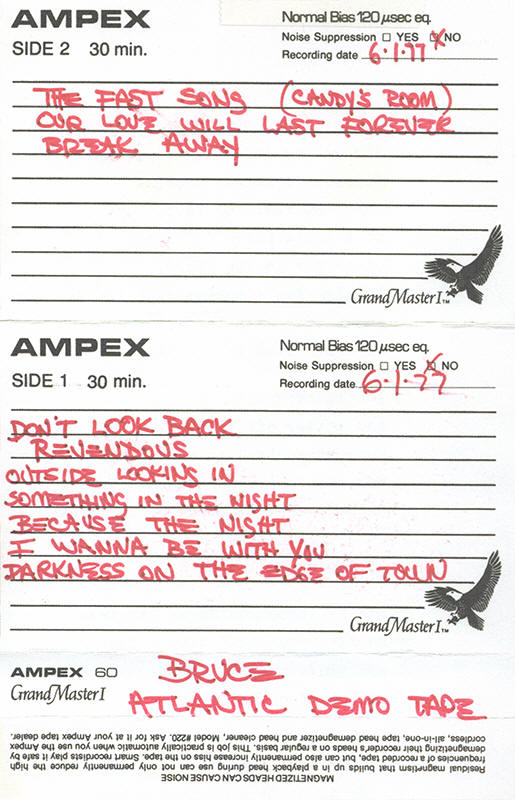 AMPEX
Normal Bias 120 µsec eq.
SIDE 2 30 min.
Noise Suppression □ YES □ NO
Recording date 6-1-77
THE FAST SONG (CANDY'S ROOM)
OUR LOVE WILL LAST FOREVER
BREAK AWAY
Grand Master I™
AMPEX
Normal Bias 120 µsec eq.
SIDE 1 30 min.
Noise Suppression □ YES □ NO
Recording date 6-1-77
DON'T LOOK BACK
REVENDOUS
OUTSIDE LOOKING IN
SOMETHING IN THE NIGHT
BECAUSE THE NIGHT
I WANNA BE WITH YOU
DARKNESS ON THE EDGE OF TOWN
Grand Master I™
AMPEX 60
Grand Master I
BRUCE
ATLANTIC DEMO TAPE
MAGNETIZED HEADS CAN CAUSE NOISE
Residual magnetism that builds up in a playback head during use can not only permanently reduce the high
frequencies of a recorded tape, but can also permanently increase hiss on the tape. Smart recordists play it safe by
demagnetizing their recorder's heads on a regular basis. This job is practically automatic when you use the Ampex
cordless, all-in-one, tape head demagnetizer and head cleaner, Model #220. Ask for it at your Ampex tape dealer.